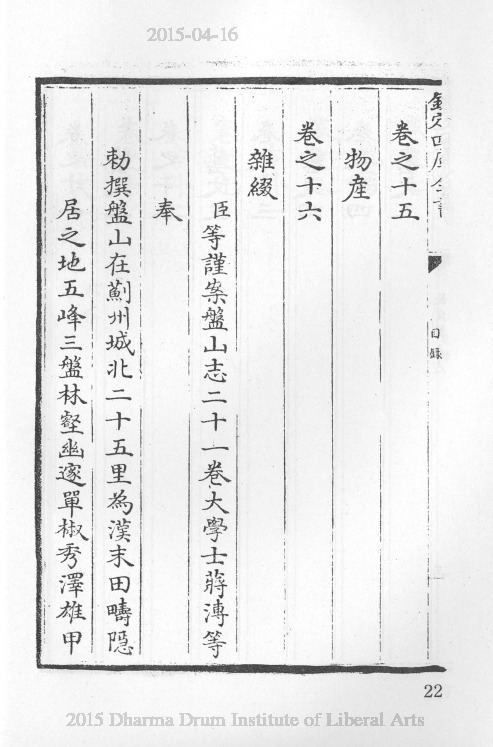 2015-04-16
欽定四庫全書
目錄
卷之十五
物產
卷之十六
雜綴
臣等謹案盤山志二十一卷大學士蔣溥等
奉
勅撰盤山在薊州城北二十五里為漢末田疇隱
居之地五峰三盤林壑幽邃單椒秀澤雄甲
22
2015 Dharma Drum Institute of Liberal Arts